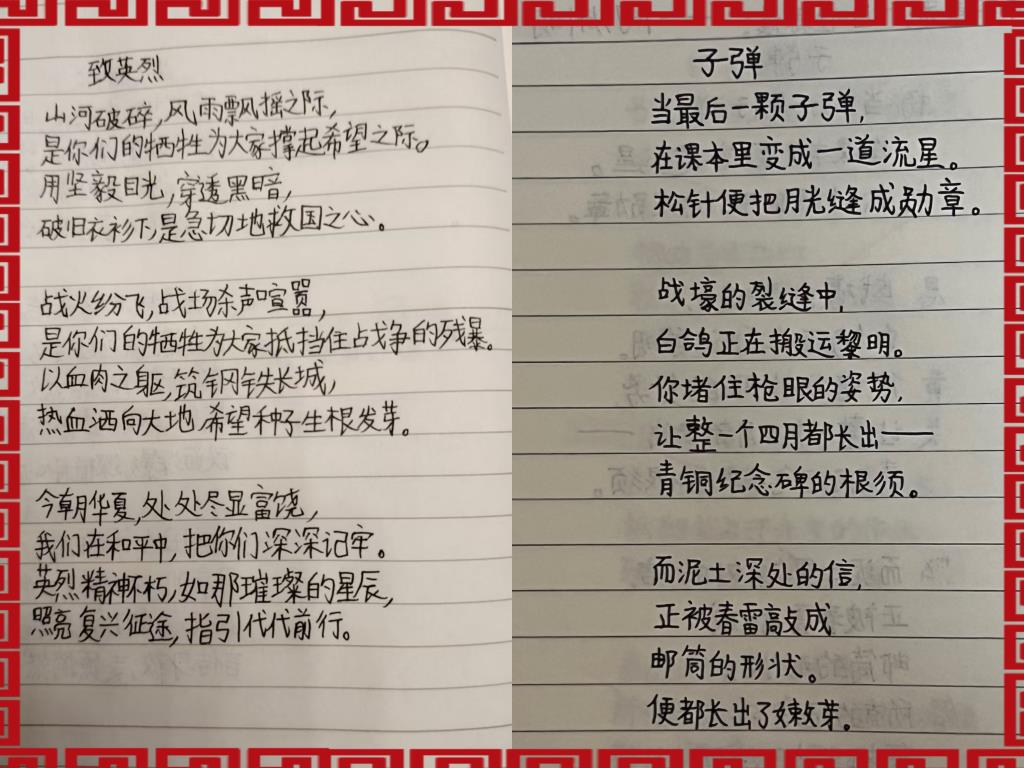 致英烈
山河破碎,风雨飘摇之际,
是你们的牺牲为大家撑起希望之际。
用坚毅目光,穿透黑暗,
破旧衣衫下,是急切地救国之心。
战火纷飞,战场杀声喧嚣,
是你们的牺牲为大家抵挡住占战争的残暴。
以血肉之躯,筑钢铁长城,
热血洒向大地,希望种子生根发芽。
今朝华夏,处处尽显富饶,
我们在和平中,把你们深深记牢。
英烈精神不朽,如那璀璨的星辰,
照亮复兴征途,指引代代前行。
子弹
当最后一颗子弹,
在课本里变成一道流星。
松针便把月光缝成勋章。
战壕的裂缝中,
白鸽正在搬运黎明。
你堵住枪眼的姿势,
让整一个四月都长出——
青铜纪念碑的根须。
而泥土深处的信,
正被春雷敲成
邮筒的形状。
便都长出了嫩芽。